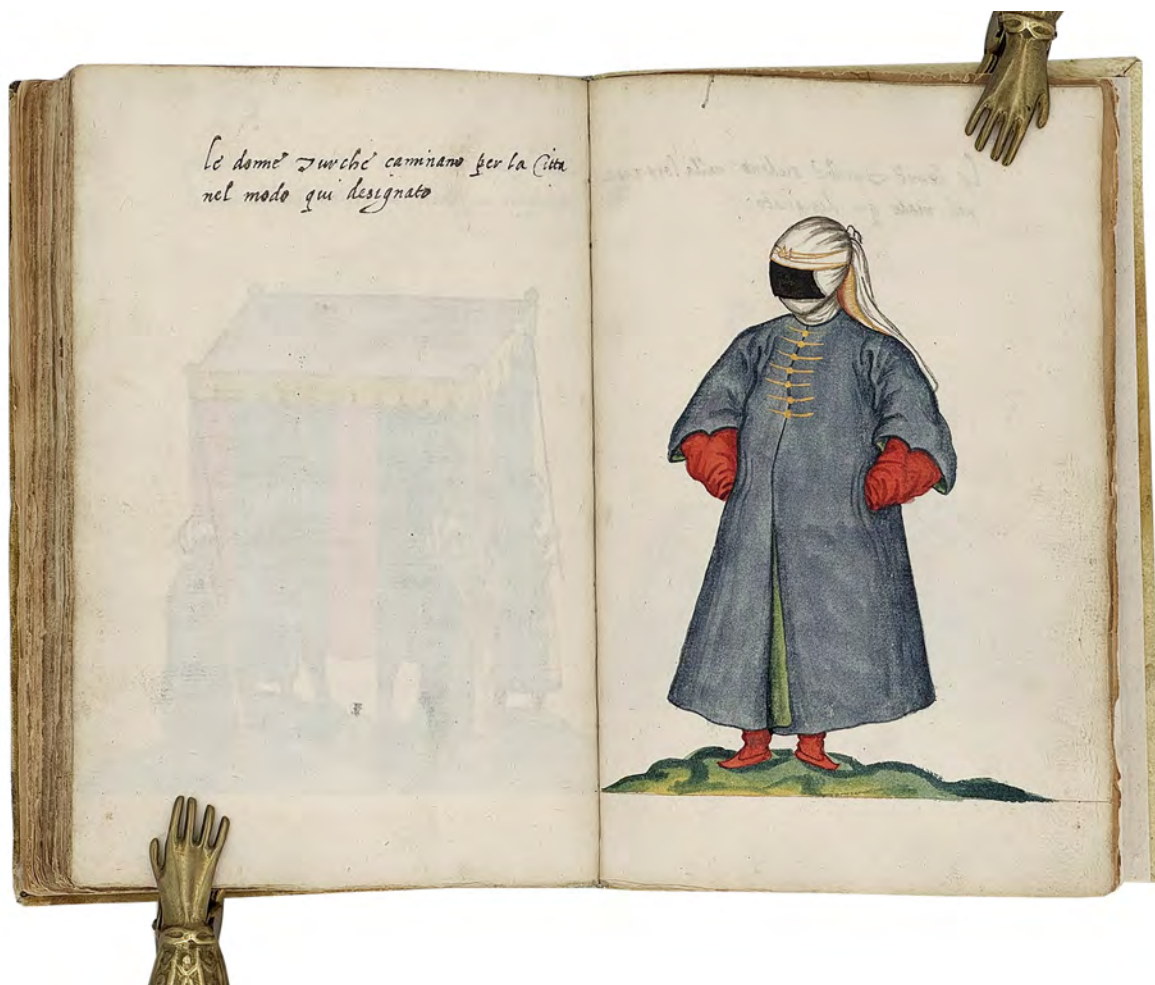 le donne Turche caminano per la Citta
nel modo qui designato